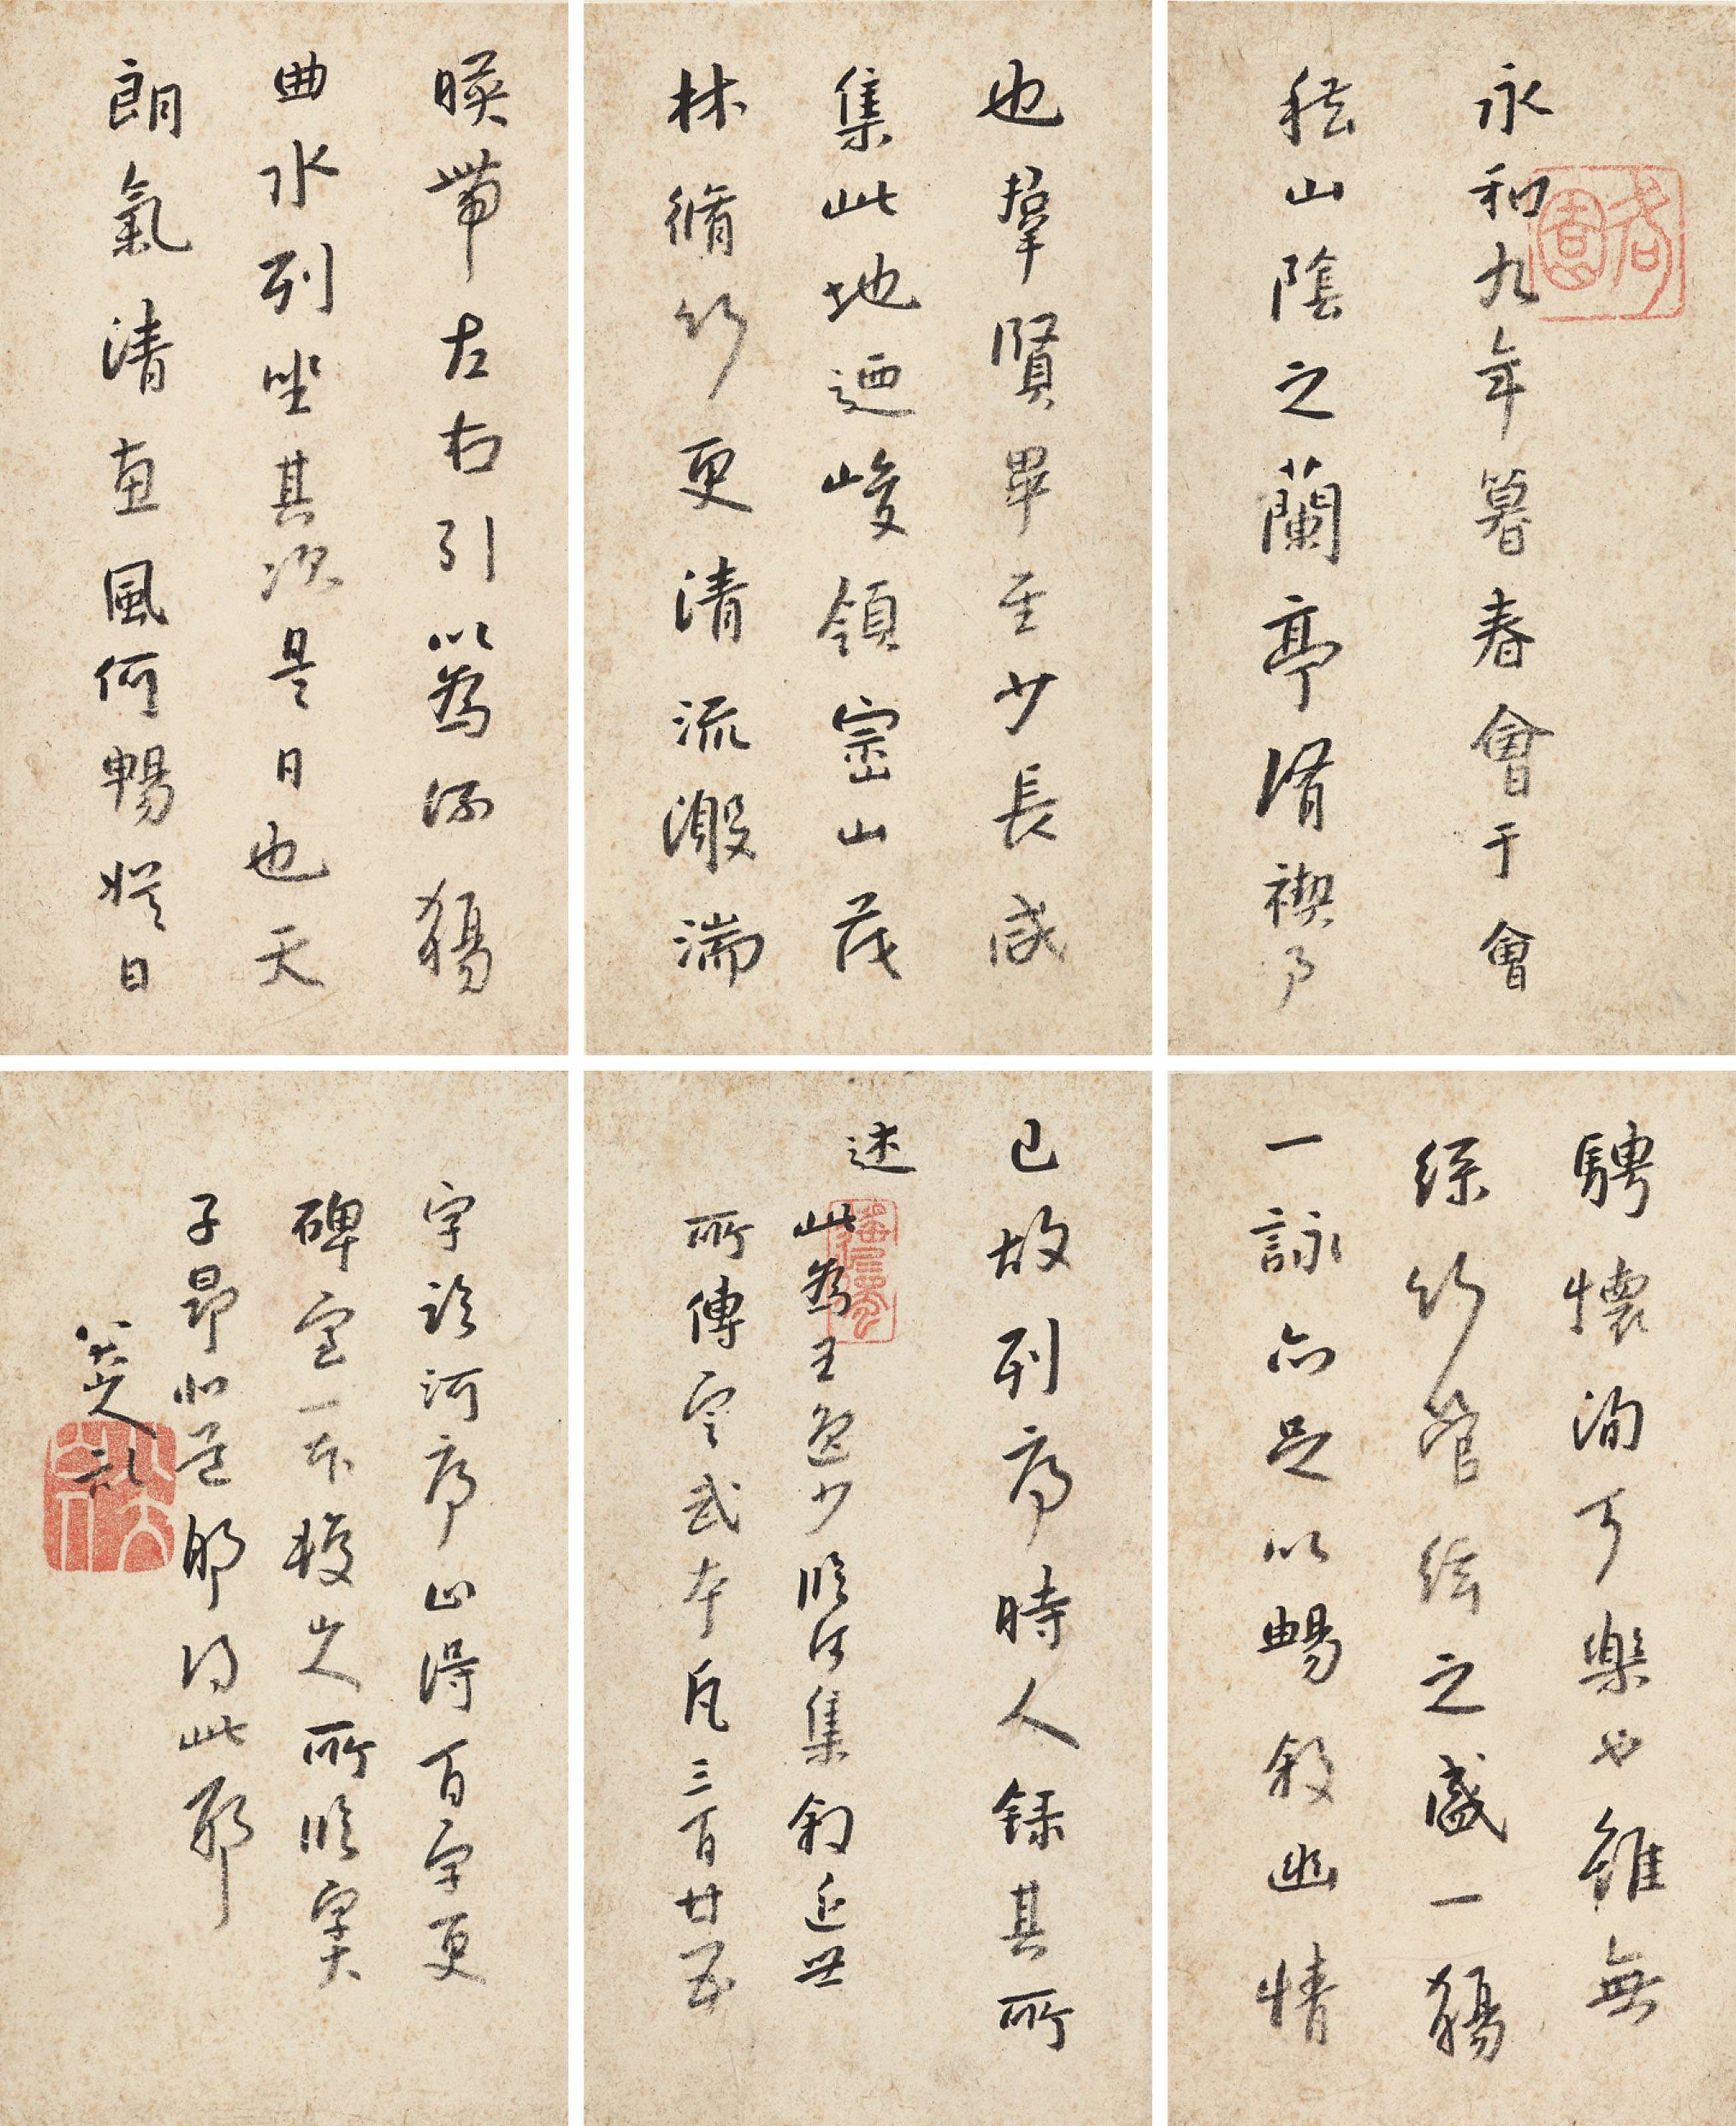 永和九年暮春會于會
稽山陰之蘭亭脩禊事
也羣賢畢至少長咸
集此地迺峻領崇山茂
林脩竹更清流激湍
暎帶左右引以為流觴
曲水列坐其次是日也天
朗氣清惠風何暢娛日
騁懷洵可樂也雖無
絲竹管絃之盛一觴
一詠亦足以暢敘幽情
已故列序時人錄其所
述
此為王逸少臨河集敘近世
所傳定武本凡三百廿五
字臨河序止得百字更
碑宜一本較之所臨
子昂 得此耶
八大山人記